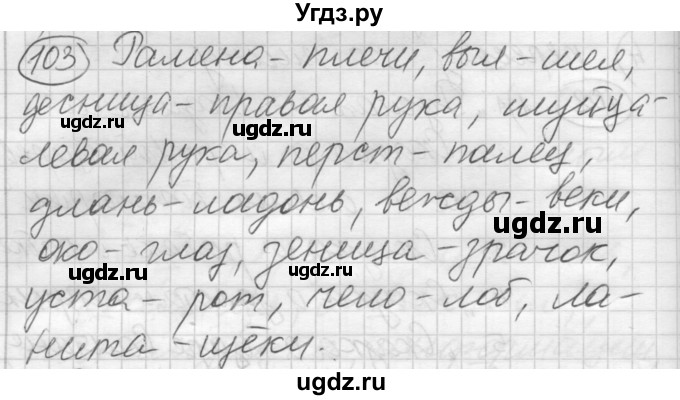 Угдз.ру
103 Рамена - плечи, выя - шея,
десница - правая рука, шуйца -
левая рука, перст - палец,
длань - ладонь, вежды - веки,
око - глаз, зеница - зрачок,
уста - рот, чело - лоб, ла-
нита - щёки.
ugdz.ru
ugdz.ru
ugdz.ru
ugdz.ru
ugdz.ru
ugdz.ru
ugdz.ru
ugdz.ru
ugdz.ru